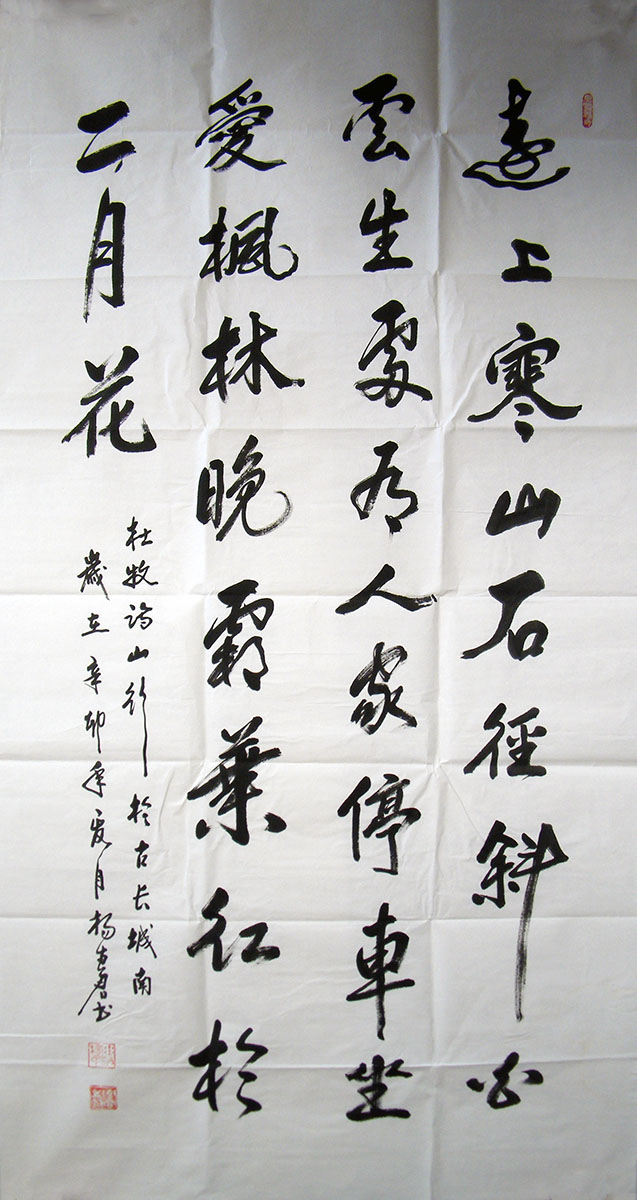 遠上寒山石徑斜白
雲生處有人家停車坐
愛楓林晚霜葉红於
二月花
杜牧詩山行於古长城南
歲在辛卯年夏月楊書